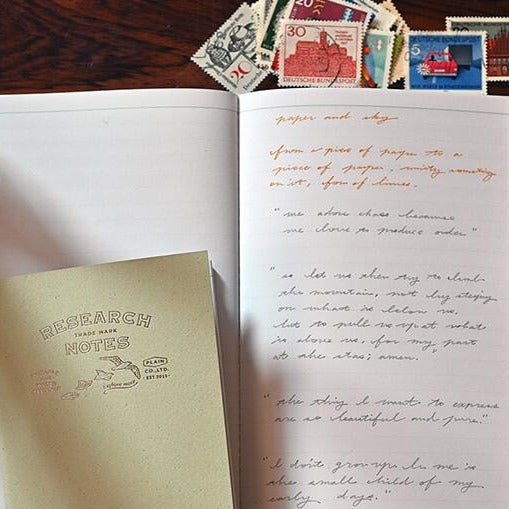 20
20
30
DEUTSCHE BUNDESPOST
5
DEUTSCHE BUNDESPOST
paper and sky
from a piece of paper to a
piece of paper, writing something
on it, of lines.
"we adore chaos because
we love to produce order"
"so let us then try to climb
the mountain, not by stepping
on what is below us,
but to pull us up at what
is above us, for my part
at the stars; amen."
"the thing I want to express
are so beautiful and pure."
"I don't grow up. In me is
the small child of my
early days."
RESEARCH
TRADE MARK
NOTES
PLAIN
CO.,LTD.
EST.2015